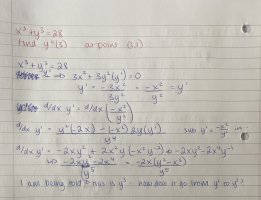 x³+y³=28
find y''(3) at point (3,1)
x³+y³=28
y' ⇒ 3x²+3y²(y')=0
y' = -3x²/3y² = -x²/y² = y'
d/dx y' = d/dx (-x²/y²)
d/dx y' = y²(-2x) - (-x²) 2y(y') / y⁴ sub y' = -x²/y² in
d/dx y' = -2xy² + 2x²y (-x²y⁻²) ⇒ -2xy² - 2x⁴y⁻¹
⇒ -2xy³ - 2x⁴ / y⁵ = -2x(y³ - x³)
I am being told this is y⁵ how does it go from y⁴ to y⁵?